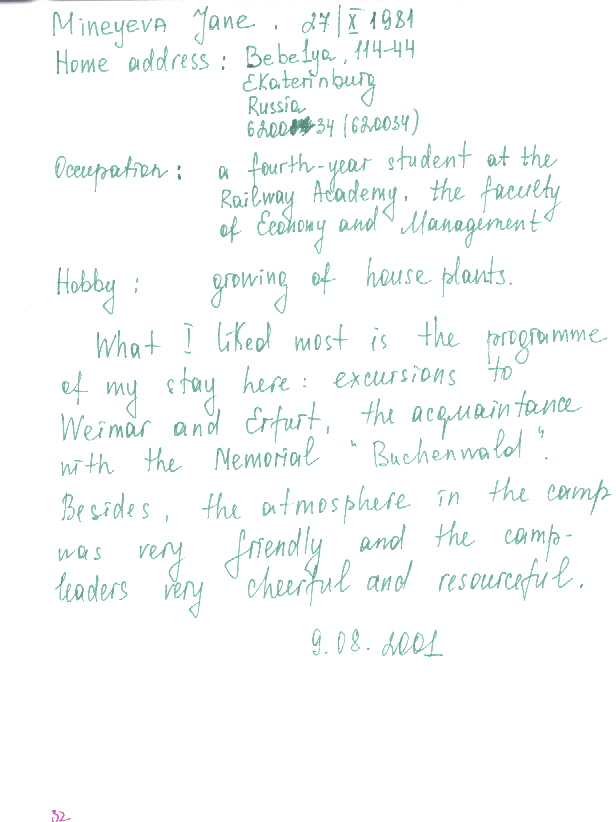 Mineyeva Jane. 27/X 1981
Home address: Bebelya, 114-44
Ekaterinburg
Russia
620034 (620034)
Occupation: a fourth-year student at the
Railway Academy, the faculty
of Economy and Management
Hobby: growing of house plants.
What I liked most is the programme
of my stay here: excursions to
Weimar and Erfurt, the acquaintance
with the Memorial "Buchenwald".
Besides, the atmosphere in the camp
was very friendly and the camp-
leaders very cheerful and resourceful.
9.08.2001
32